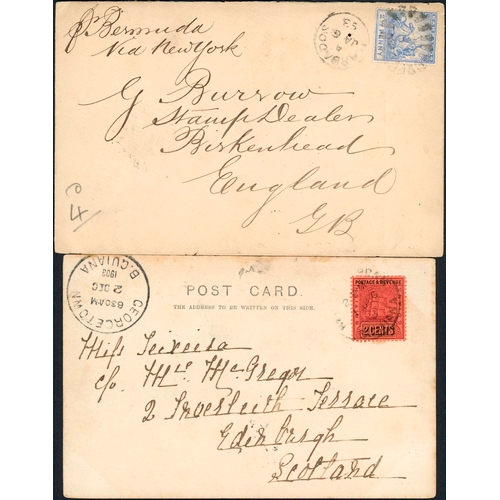 pr Bermuda
Via New York
G Burrow
Stamp Dealer
Birkenhead
England
GB
GEORGETOWN
B. GUIANA
830AM
2 DEC
1903
POST CARD.
THE ADDRESS TO BE WRITTEN ON THIS SIDE.
POSTAGE & REVENUE
2 CENTS
Miss Teixeira
c/o Mrs McGregor
2 Inverleith Terrace
Edinburgh
Scotland